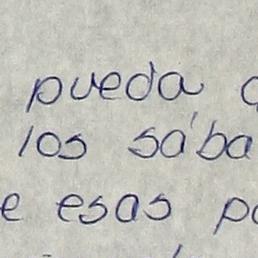 pueda
los sába
e esas po